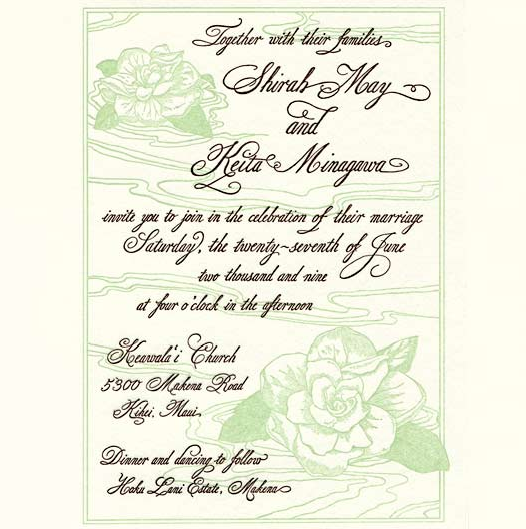 Together with their families
Shirah May
and
Keita Minagawa
invite you to join in the celebration of their marriage
Saturday, the twenty-seventh of June
two thousand and nine
at four o'clock in the afternoon
Keawala'i Church
5300 Makena Road
Kihei, Maui
Dinner and dancing to follow
Hoku Lani Estate, Makena